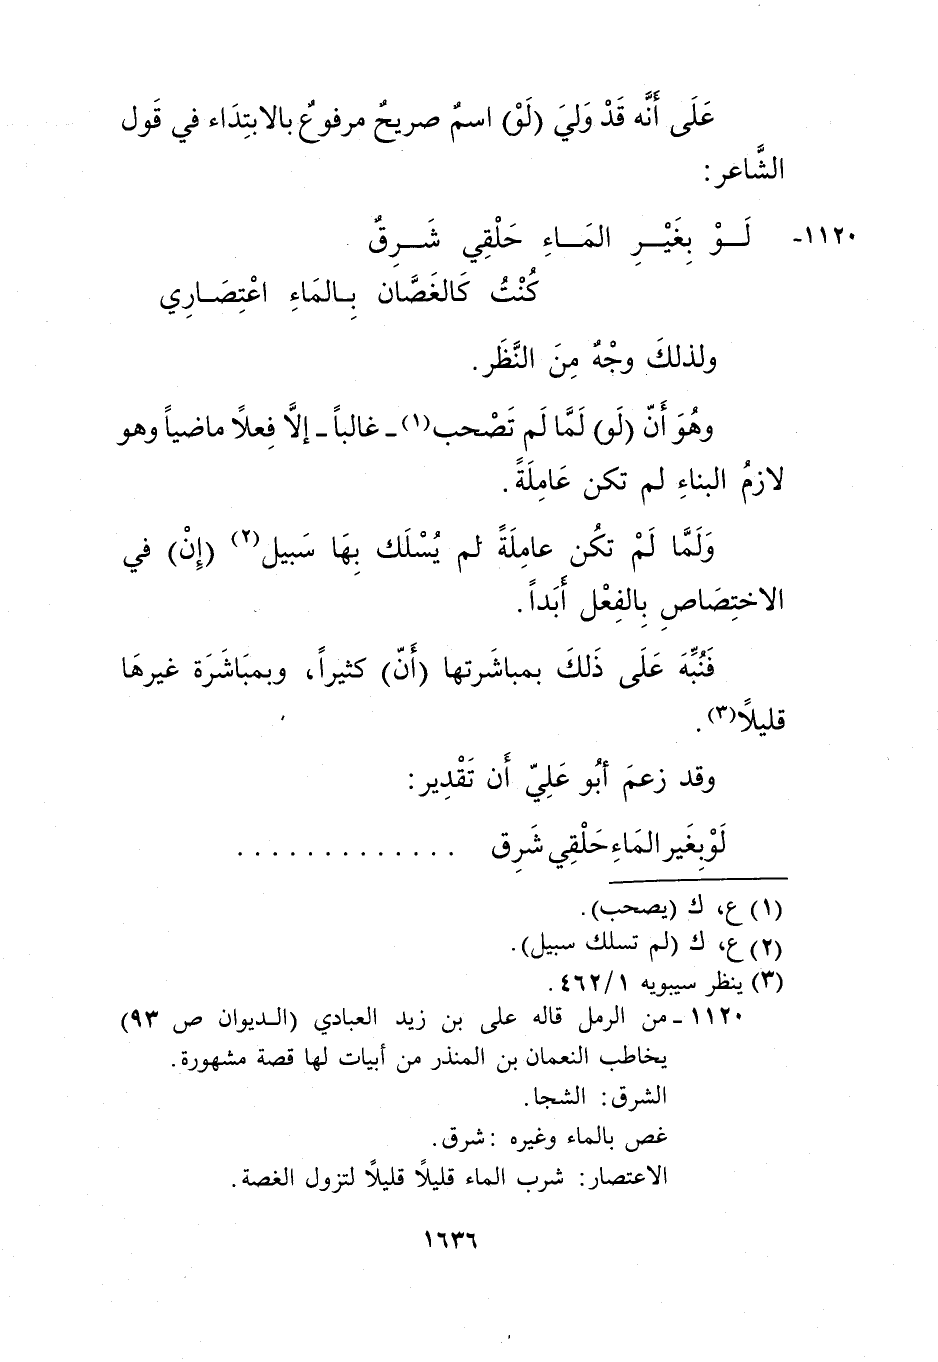 عَلَى أَنَّه قَدْ وَليَ (لَوْ) اسمٌ صريحٌ مرفوعٌ بالابتِدَاء في قَول
الشَّاعر :
١١٢٠- لَــوْ بِغَيْــرِ المَــاءِ حَلْقِي شَــرِقٌ
كُنْتُ كَالغَصَّان بِـالمَاءِ اعْتِصَـارِي
ولذلكَ وجْهٌ مِنَ النَّظَر .
وهُوَ أَنّ (لَو) لَمَّا لَم تَصْحب(١) ـ غالباً ـ إلَّا فِعلًا ماضياً وهو
لازمُ البناءِ لم تكن عَامِلَةً .
وَلَمَّا لَمْ تكُن عامِلَةً لم يُسْلَك بِهَا سَبيل(٢) (إِنْ) في
الاختِصَاصِ بِالفِعْل أَبَداً .
فَنُبِّهَ عَلَى ذَلكَ بمباشَرتها (أَنّ) كثيراً، وبمبَاشَرَة غيرهَا
قليلًا(٣) .
وقد زعمَ أبُو عَلِيّ أَن تَقْدِير :
لَوْ بِغَير المَاءِ حَلْقِي شَرِق . . . . . . . . . . . . .
(١) ع، ك (يصحب) .
(٢) ع، ك (لم تسلك سبيل) .
(٣) ينظر سيبويه ٤٦٢/١ .
١١٢٠ ـ من الرمل قاله على بن زيد العبادي (الـديوان ص ٩٣)
يخاطب النعمان بن المنذر من أبيات لها قصة مشهورة .
الشرق : الشجا .
غص بالماء وغيره : شرق .
الاعتصار : شرب الماء قليلًا قليلًا لتزول الغصة .
١٦٣٦